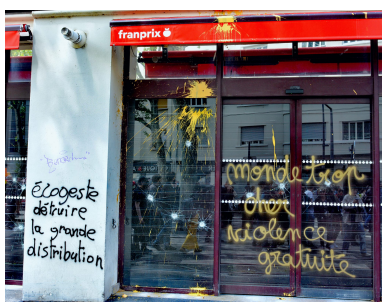 franprix
Écogeste
détruire
la grande
distribution
monde trop
cher
violence
gratuite